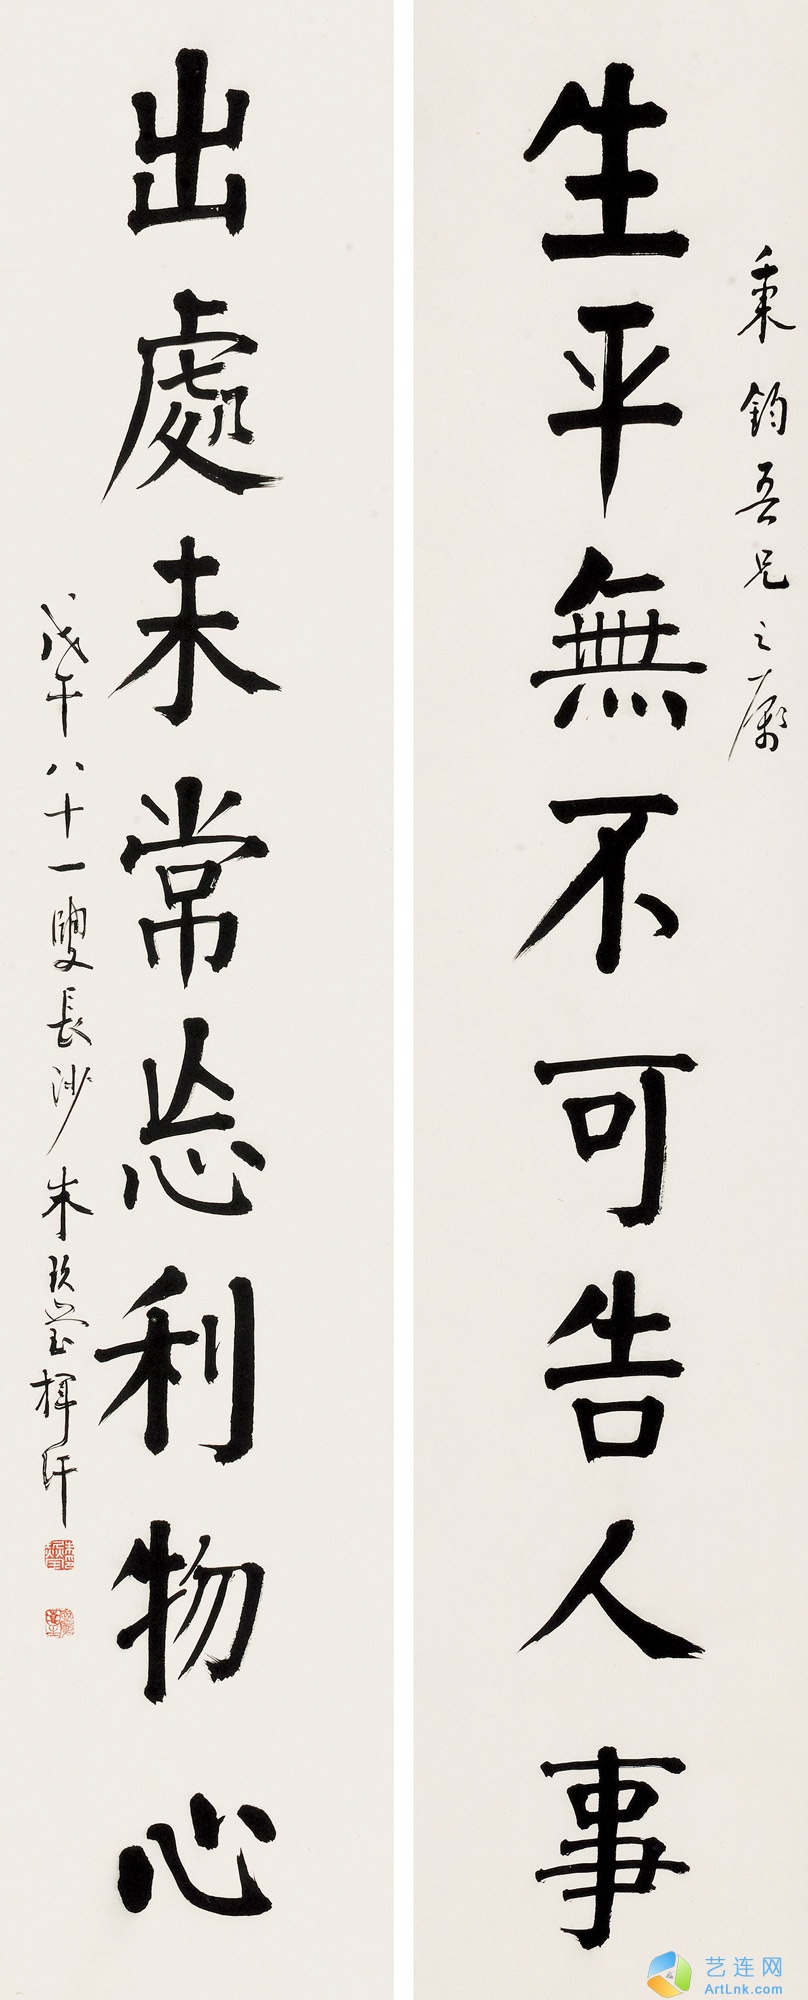 秉鈞吾兄之屬
生平無不可告人事
出處未常忘利物心
戊午八十一叟長沙朱玖瑩揮汗
艺连网
ArtLnk.com